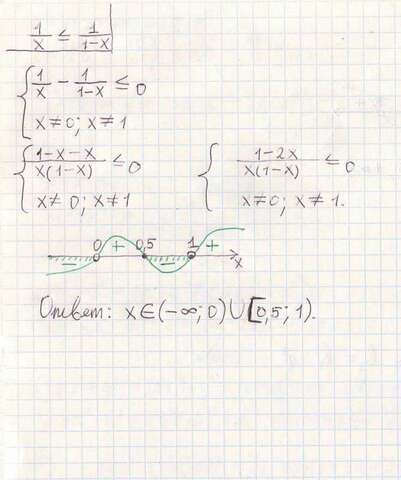 1/x ≤ 1/(1-x)
{ 1/x - 1/(1-x) ≤ 0
x≠0; x≠1
{ (1-x-x)/(x(1-x)) ≤ 0 { (1-2x)/(x(1-x)) ≤ 0
x≠0; x≠1 x≠0; x≠1.
0 + 0,5 1 +
- - x
Ответ: x∈(-∞;0)∪[0,5;1).